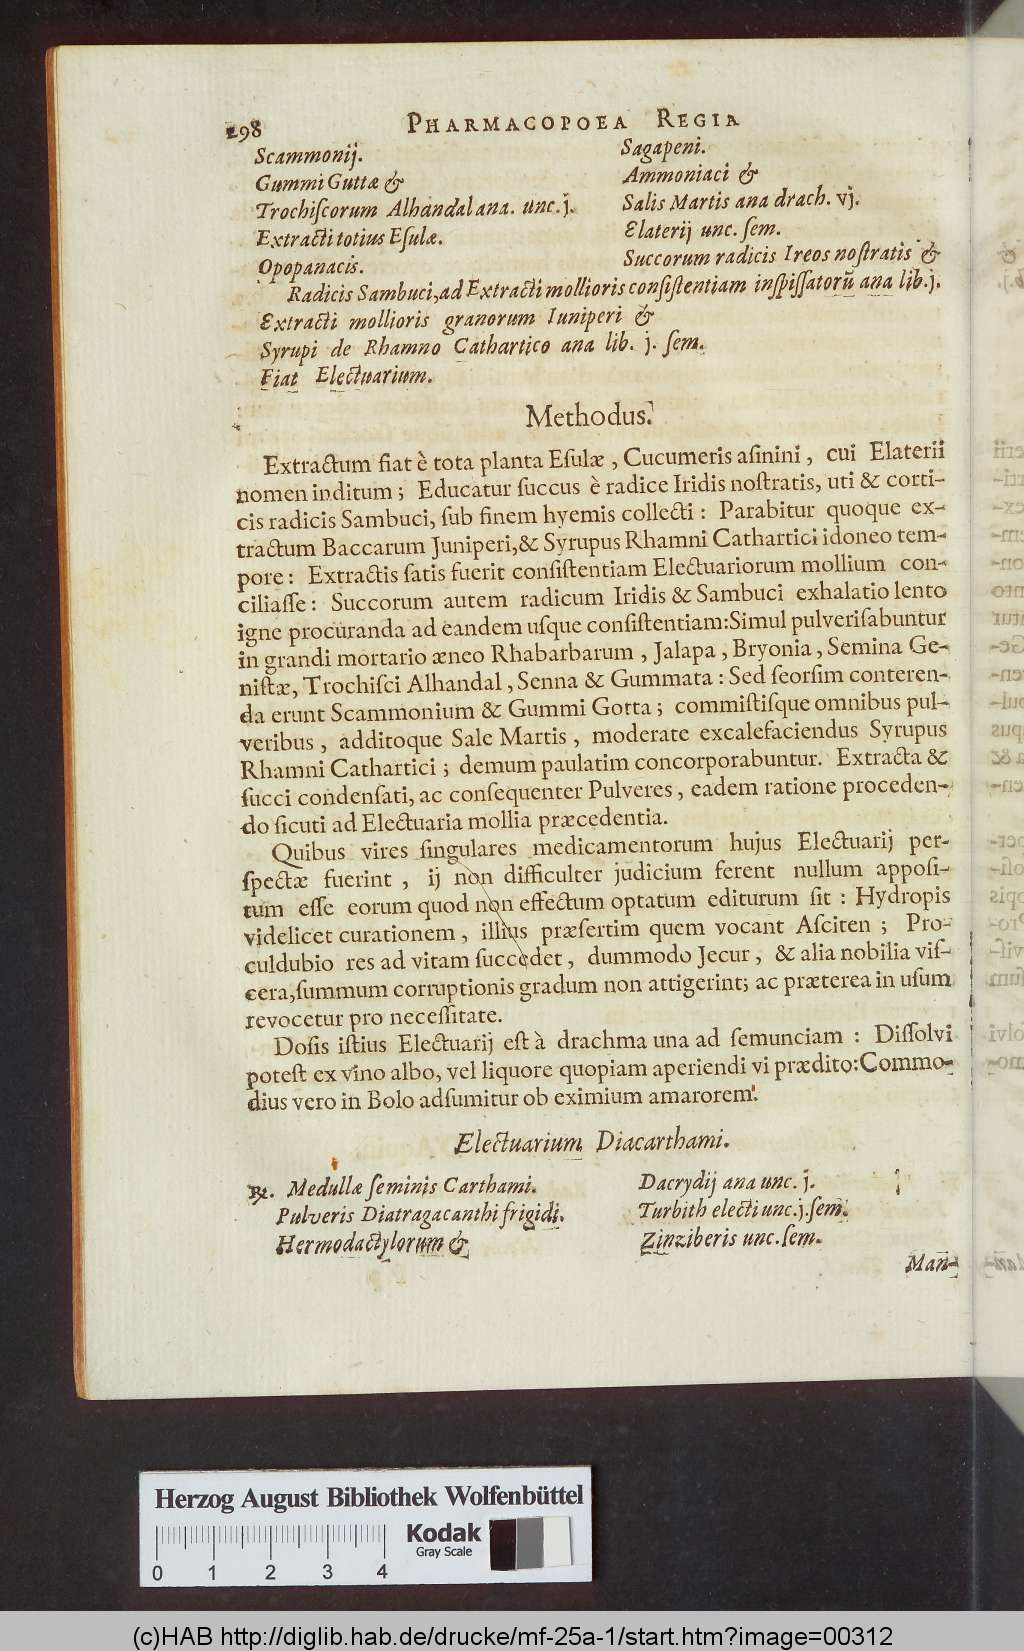 298 PHARMACOPOEA REGIA
Scammonij.
Gummi Guttæ &
Trochiſcorum Alhandal ana. unc. j.
Extracti totius Eſulæ.
Opopanacis.
Sagapeni.
Ammoniaci &
Salis Martis ana drach. vj.
Elaterij unc. ſem.
Succorum radicis Ireos noſtratis &
Radicis Sambuci, ad Extracti mollioris conſiſtentiam inſpiſſatorũ ana lib. j.
Extracti mollioris granorum Iuniperi &
Syrupi de Rhamno Cathartico ana lib. j. ſem.
Fiat Electuarium.
Methodus.
Extractum fiat è tota planta Eſulæ, Cucumeris aſinini, cui Elaterii
nomen inditum; Educatur ſuccus è radice Iridis noſtratis, uti & corti-
cis radicis Sambuci, ſub finem hyemis collecti: Parabitur quoque ex-
tractum Baccarum Juniperi, & Syrupus Rhamni Cathartici idoneo tem-
pore: Extractis ſatis fuerit conſiſtentiam Electuariorum mollium con-
ciliaſſe: Succorum autem radicum Iridis & Sambuci exhalatio lento
igne procuranda ad eandem uſque conſiſtentiam: Simul pulveriſabuntur
in grandi mortario æneo Rhabarbarum, Jalapa, Bryonia, Semina Ge-
niſtæ, Trochiſci Alhandal, Senna & Gummata: Sed ſeorſim conteren-
da erunt Scammonium & Gummi Gotta; commiſtiſque omnibus pul-
veribus, additoque Sale Martis, moderate excalefaciendus Syrupus
Rhamni Cathartici; demum paulatim concorporabuntur. Extracta &
ſucci condenſati, ac conſequenter Pulveres, eadem ratione proceden-
do ſicuti ad Electuaria mollia præcedentia.
Quibus vires ſingulares medicamentorum hujus Electuarij per-
ſpectæ fuerint, ij non difficulter judicium ferent nullum appoſi-
tum eſſe eorum quod non effectum optatum editurum ſit: Hydropis
videlicet curationem, illius præſertim quem vocant Aſciten; Pro-
culdubio res ad vitam ſuccedet, dummodo Jecur, & alia nobilia viſ-
cera, ſummum corruptionis gradum non attigerint; ac præterea in uſum
revocetur pro neceſſitate.
Doſis iſtius Electuarij eſt à drachma una ad ſemunciam: Diſſolvi
poteſt ex vino albo, vel liquore quopiam aperiendi vi prædito: Commo-
dius vero in Bolo adſumitur ob eximium amarorem.
Electuarium Diacarthami.
℞. Medullæ ſeminis Carthami.
Pulveris Diatragacanthi frigidi.
Hermodactylorum &
Dacrydij ana unc. j.
Turbith electi unc. j. ſem.
Zinziberis unc. ſem.
Man-
Herzog August Bibliothek Wolfenbüttel
0 1 2 3 4
Kodak
Gray Scale
(c)HAB http://diglib.hab.de/drucke/mf-25a-1/start.htm?image=00312